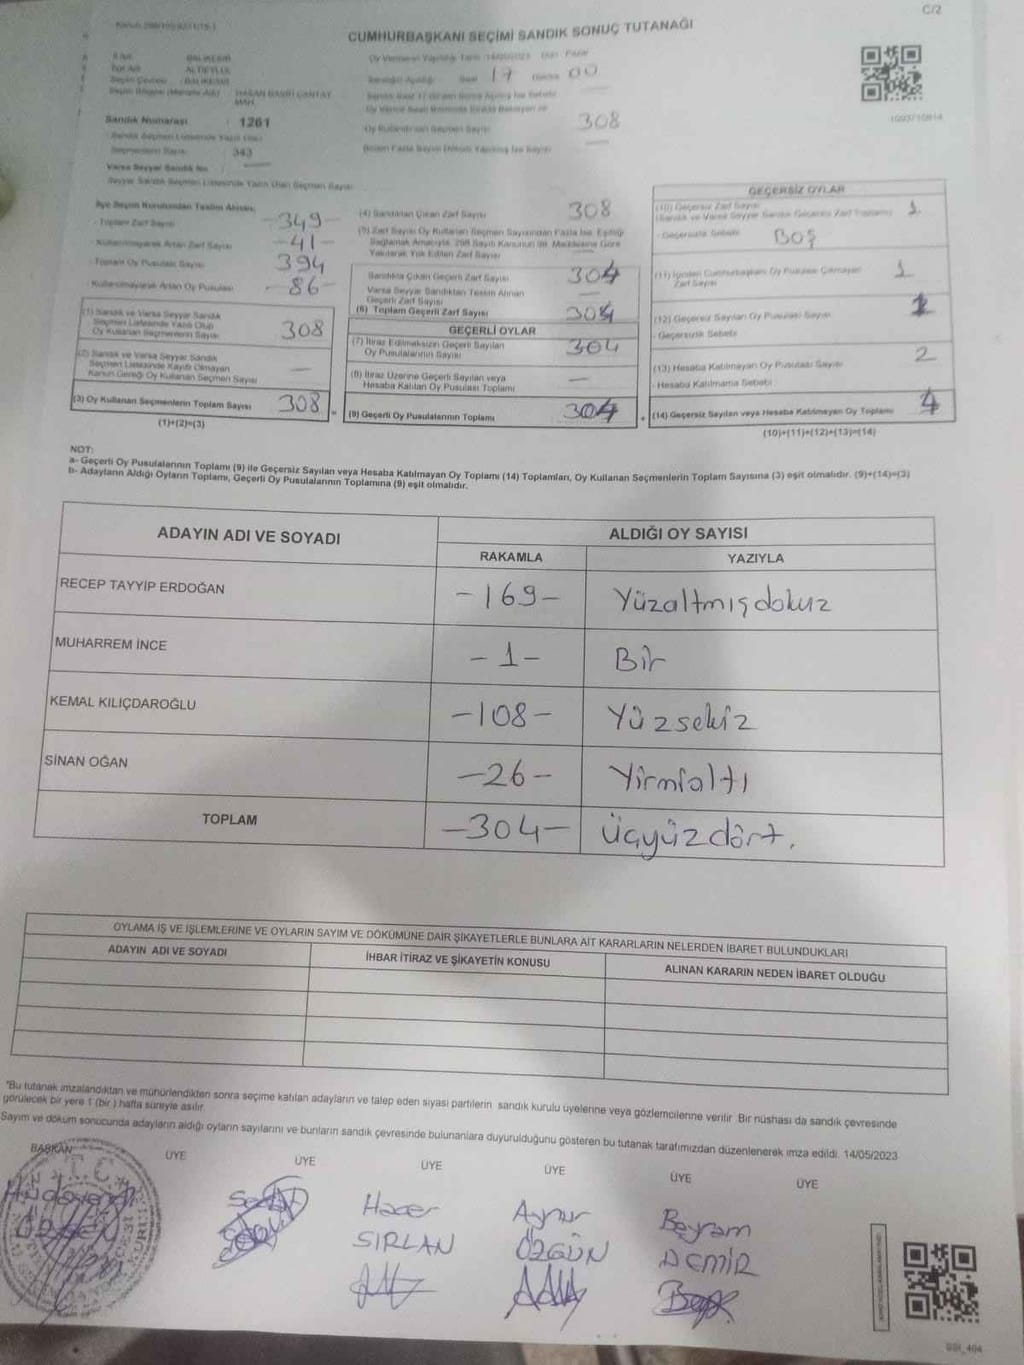 C/2
CUMHURBAŞKANI SEÇİMİ SANDIK SONUÇ TUTANAĞI
17 00
HASAN BASRİ ÇANTAY
MAH.
Sandık Numarası : 1261
308
343
Varsa Seyyar Sandık No
Seyyar Sandık Seçmen Listesinde Yazılı Olan Seçmen Sayısı
İlçe Seçim Kurulundan Teslim Alınan;
- Toplam Zarf Sayısı -349-
- Kullanılmayarak Artan Zarf Sayısı -41-
- Toplam Oy Pusulası Sayısı 394
- Kullanılmayarak Artan Oy Pusulası -86-
(1) Sandık ve Varsa Seyyar Sandık
Seçmen Listesinde Yazılı Olup
Oy Kullanan Seçmenlerin Sayısı 308
(2) Sandık ve Varsa Seyyar Sandık
Seçmen Listesinde Kayıtlı Olmayan
Kanun Gereği Oy Kullanan Seçmen Sayısı —
(3) Oy Kullanan Seçmenlerin Toplam Sayısı 308
(1)+(2)=(3)
(4) Sandıktan Çıkan Zarf Sayısı 308
(5) Zarf Sayısı Oy Kullanan Seçmen Sayısından Fazla İse, Eşitliği
Sağlamak Amacıyla, 298 Sayılı Kanunun 98. Maddesine Göre
Yakılarak Yok Edilen Zarf Sayısı —
Sandıkta Çıkan Geçerli Zarf Sayısı 304
Varsa Seyyar Sandıktan Teslim Alınan
Geçerli Zarf Sayısı —
(6) Toplam Geçerli Zarf Sayısı 304
GEÇERLİ OYLAR
(7) İtiraz Edilmeksizin Geçerli Sayılan
Oy Pusulalarının Sayısı 304
(8) İtiraz Üzerine Geçerli Sayılan veya
Hesaba Katılan Oy Pusulası Toplamı —
(9) Geçerli Oy Pusulalarının Toplamı 304
GEÇERSİZ OYLAR
(10) Geçersiz Zarf Sayısı 1
(Sandık ve Varsa Seyyar Sandık Geçersiz Zarf Toplamı)
- Geçersizlik Sebebi BOŞ
(11) İçinden Cumhurbaşkanı Oy Pusulası Çıkmayan
Zarf Sayısı 1
(12) Geçersiz Sayılan Oy Pusulası Sayısı
- Geçersizlik Sebebi
(13) Hesaba Katılmayan Oy Pusulası Sayısı 2
- Hesaba Katılmama Sebebi
(14) Geçersiz Sayılan veya Hesaba Katılmayan Oy Toplamı 4
(10)+(11)+(12)+(13)=(14)
NOT:
a- Geçerli Oy Pusulalarının Toplamı (9) ile Geçersiz Sayılan veya Hesaba Katılmayan Oy Toplamı (14) Toplamları, Oy Kullanan Seçmenlerin Toplam Sayısına (3) eşit olmalıdır. (9)+(14)=(3)
b- Adayların Aldığı Oyların Toplamı, Geçerli Oy Pusulalarının Toplamına (9) eşit olmalıdır.
ADAYIN ADI VE SOYADI
ALDIĞI OY SAYISI
RAKAMLA YAZIYLA
RECEP TAYYİP ERDOĞAN -169- Yüzaltmışdokuz
MUHARREM İNCE -1- Bir
KEMAL KILIÇDAROĞLU -108- Yüzsekiz
SİNAN OĞAN -26- Yirmialtı
TOPLAM -304- Üçyüzdört.
OYLAMA İŞ VE İŞLEMLERİNE VE OYLARIN SAYIM VE DÖKÜMÜNE DAİR ŞİKAYETLERLE BUNLARA AİT KARARLARIN NELERDEN İBARET BULUNDUKLARI
ADAYIN ADI VE SOYADI
İHBAR İTİRAZ VE ŞİKAYETİN KONUSU
ALINAN KARARIN NEDEN İBARET OLDUĞU
*Bu tutanak imzalandıktan ve mühürlendikten sonra seçime katılan adayların ve talep eden siyasi partilerin sandık kurulu üyelerine veya gözlemcilerine verilir. Bir nüshası da sandık çevresinde
görülecek bir yere 1 (bir) hafta süreyle asılır.
Sayım ve döküm sonucunda adayların aldığı oyların sayılarını ve bunların sandık çevresinde bulunanlara duyurulduğunu gösteren bu tutanak tarafımızdan düzenlenerek imza edildi. 14/05/2023
BAŞKAN ÜYE ÜYE ÜYE ÜYE ÜYE ÜYE
Hacer
SIRLAN
Aynur
ÖZGÜN
Bayram
DEMİR
T.C.